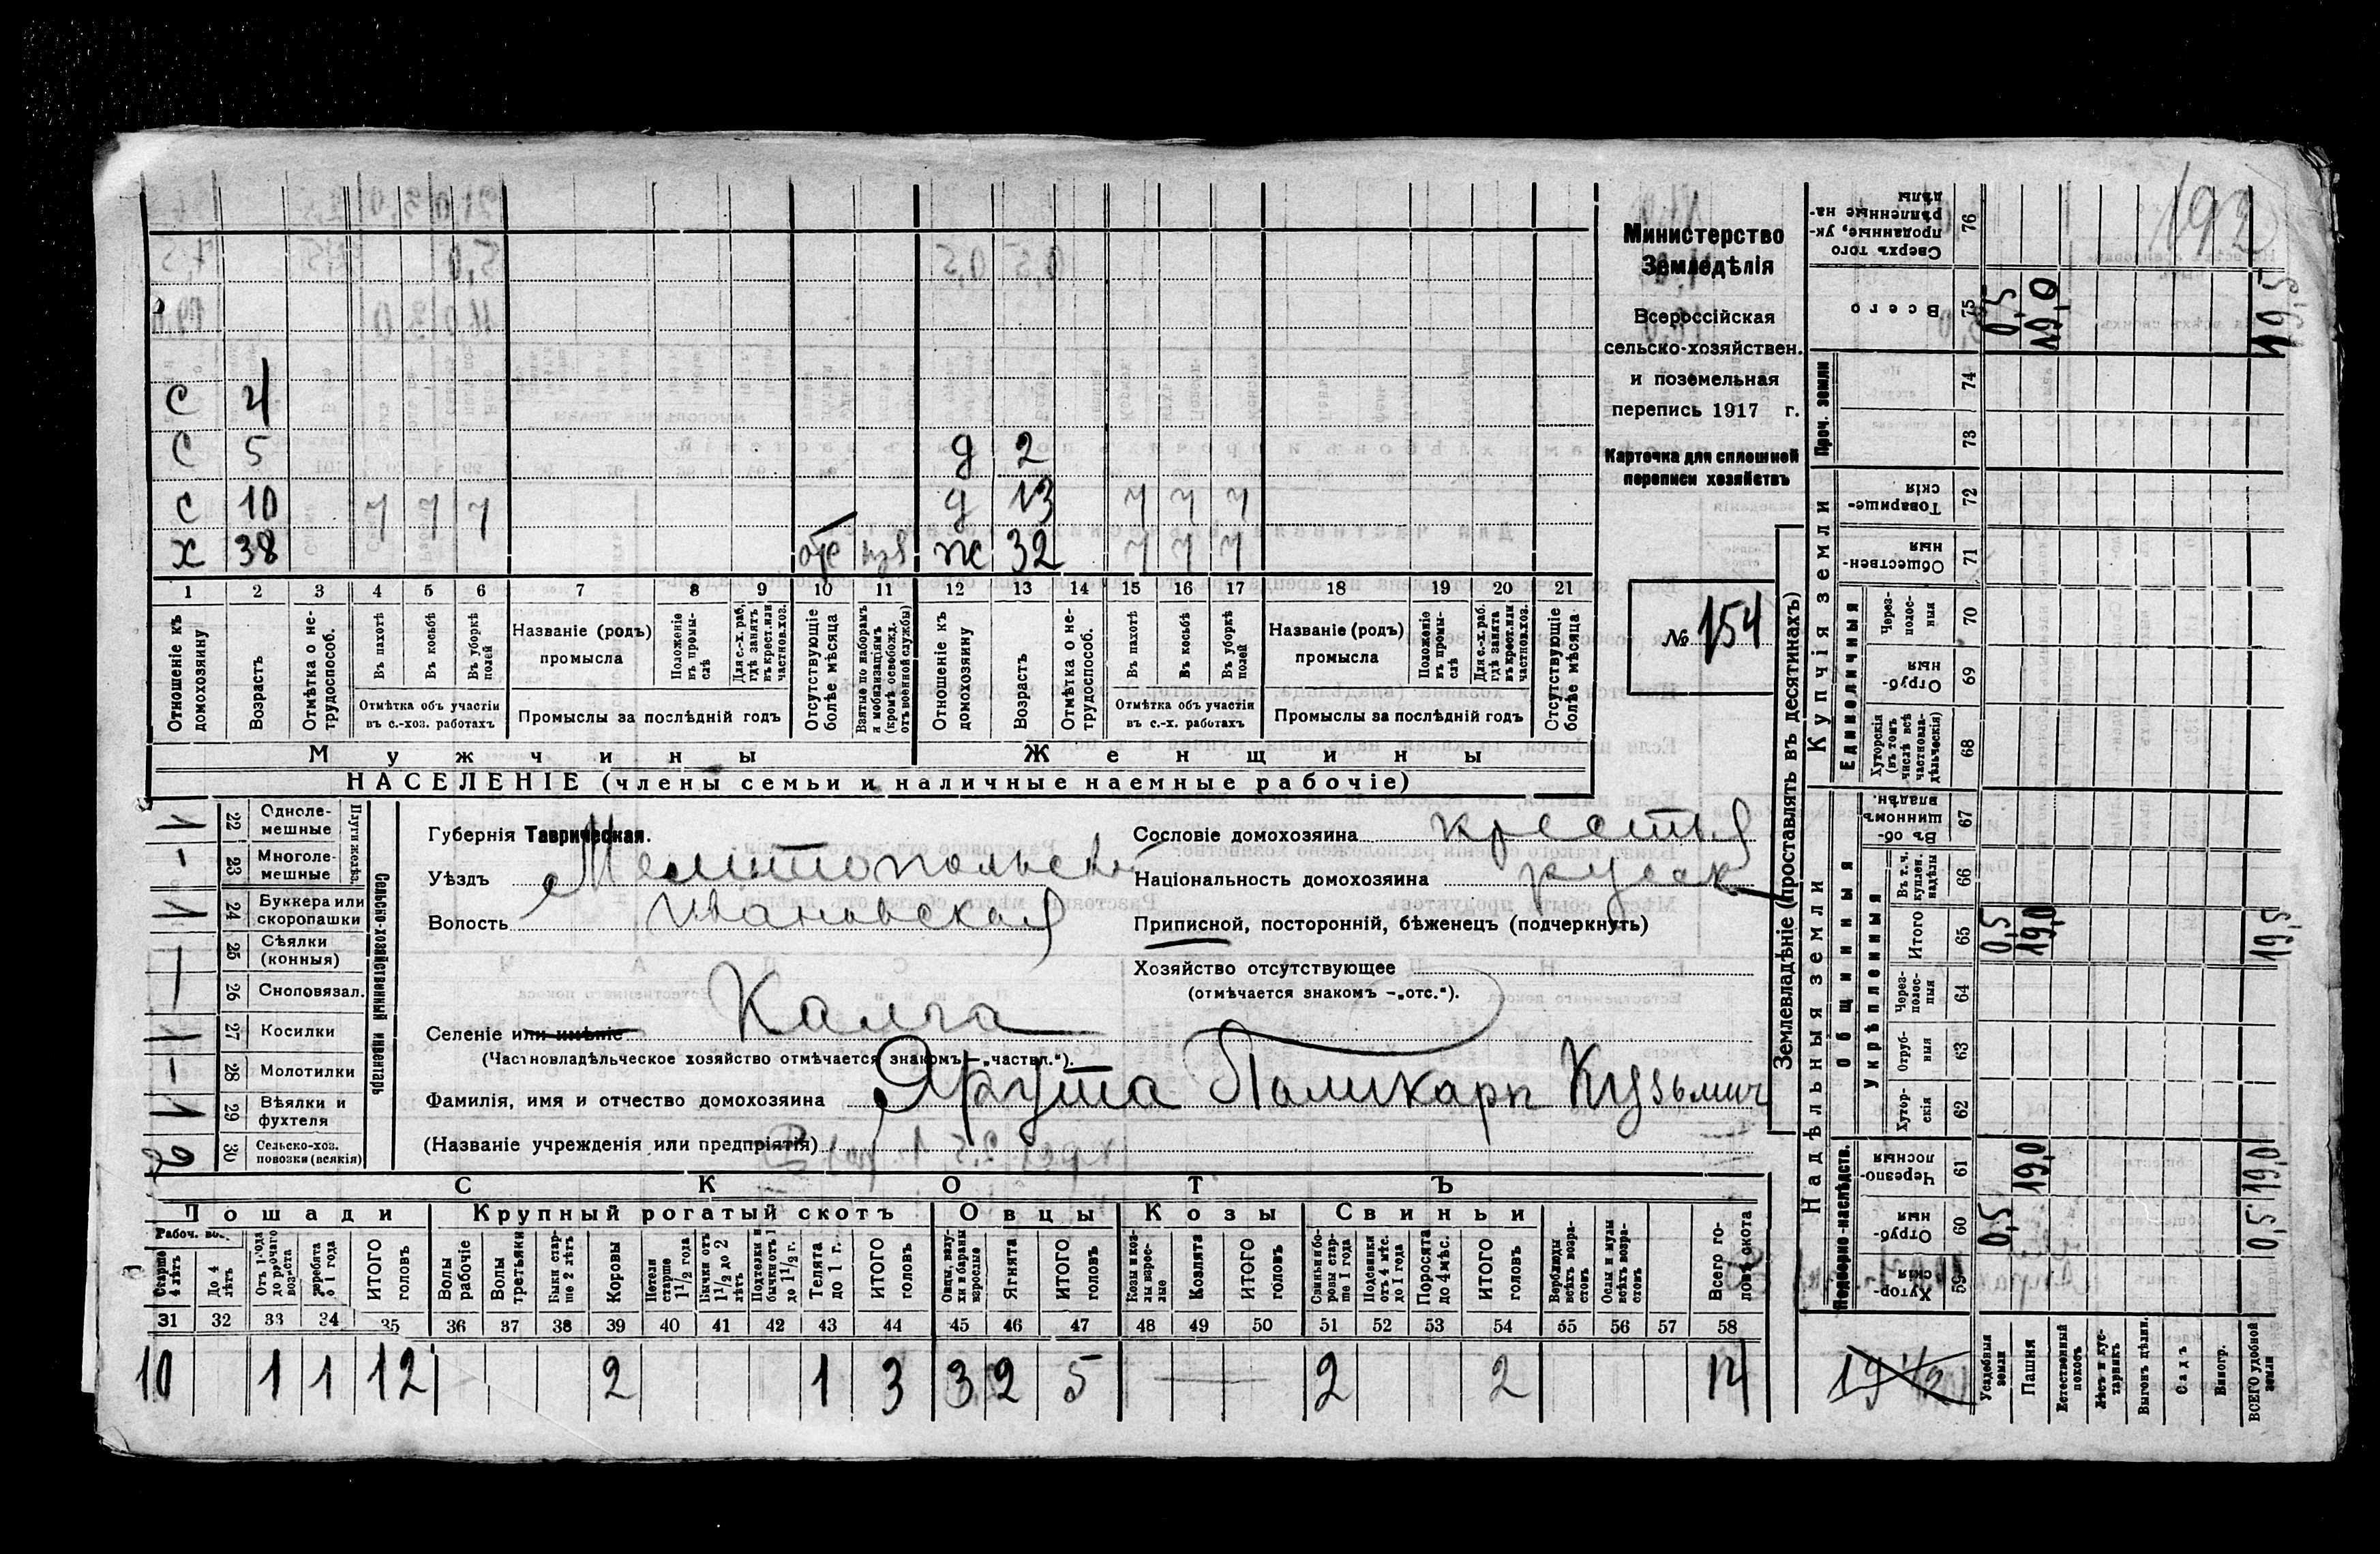 193
Министерство
Земледѣлія
Всероссійская
сельско-хозяйствен.
и поземельная
перепись 1917 г.
Карточка для сплошной
переписи хозяйствъ
№ 154
С 4
С 5 д 2
С 10 7 7 7 д 13 7 7 7
Х 38 отс взя ж 32 7 7 7
1 2 3 4 5 6 7 8 9 10 11 12 13 14 15 16 17 18 19 20 21
Отношеніе къ домохозяину
Возрастъ
Отмѣтка о не-трудоспособ.
Въ пахотѣ
Въ косьбѣ
Въ уборкѣ полей
Отмѣтка объ участіи въ с.-хоз. работахъ
Названіе (родъ) промысла
Положеніе въ промы-слѣ
Для с.-х. раб. гдѣ занятъ въ крест. или частнов. хоз.
Промыслы за послѣдній годъ
Отсутствующіе болѣе мѣсяца
Взятые по наборамъ и мобилизаціямъ (кромѣ освобожд. отъ военной службы)
Отношеніе къ домохозяину
Возрастъ
Отмѣтка о не-трудоспособ.
Въ пахотѣ
Въ косьбѣ
Въ уборкѣ полей
Отмѣтка объ участіи въ с.-х. работахъ
Названіе (родъ) промысла
Положеніе въ промы-слѣ
Для с.-х. раб. гдѣ занята въ крест. или частнов. хоз.
Промыслы за послѣдній годъ
Отсутствующіе болѣе мѣсяца
Мужчины Женщины
НАСЕЛЕНІЕ (члены семьи и наличные наемные рабочіе)
Сельско-хозяйственный инвентарь
Плуги желѣз.
1 22 Одноле-мешные
- 23 Многоле-мешные
1 24 Буккера или скоропашки
25 Сѣялки (конныя)
26 Сноповязал.
1 27 Косилки
- 28 Молотилки
1 29 Вѣялки и фухтеля
2 30 Сельско-хоз. повозки (всякія)
Губернія Таврическая.
Уѣздъ Мелитопольскій
Волость Ивановская
Селеніе или имѣніе Калга
(Частновладѣльческое хозяйство отмѣчается знакомъ —„частвл.“).
Сословіе домохозяина крестья
Національность домохозяина русск
Приписной, посторонній, бѣженецъ (подчеркнуть)
Хозяйство отсутствующее
(отмѣчается знакомъ —„отс.“).
Фамилія, имя и отчество домохозяина Ярута Поликарп Кузьмич
(Названіе учрежденія или предпріятія)
СКОТЪ
Лошади Крупный рогатый скотъ Овцы Козы Свиньи
Старше 4 лѣтъ
До 4 лѣтъ
Отъ 1 года до рабочаго возраста
Жеребята до 1 года
ИТОГО головъ
Волы рабочіе
Волы третьяки
Быки стар-ше 2 лѣтъ
Коровы
Нетели старше 1 1/2 года
Бычки отъ 1 1/2 до 2 лѣтъ
Подтелки и бычки отъ 1 до 1 1/2 г.
Телята до 1 г.
ИТОГО головъ
Овцы, валу-хи и бараны взрослые
Ягнята
ИТОГО головъ
Козы и коз-лы взрос-лые
Козлята
ИТОГО головъ
Свиньи и бо-ровы стар-ше 1 года
Подсвинки отъ 4 мѣс. до 1 года
Поросята до 4 мѣс.
ИТОГО головъ
Верблюды всѣхъ возра-стовъ
Ослы и мулы всѣхъ возра-стовъ
Всего го-ловъ скота
31 32 33 34 35 36 37 38 39 40 41 42 43 44 45 46 47 48 49 50 51 52 53 54 55 56 57 58
10 1 1 12 2 1 3 3 2 5 2 2
Землевладѣніе (проставлять въ десятинахъ)
Надѣльныя земли
Купчія земли
Проч. земли
Подворно-наслѣдств.
Общинныя
Укрѣпленныя
Единоличныя
Хутор-скія 59
Отруб-ныя 60 0,5 0,5
Черезпо-лосныя 61 19,0 19,0
Хутор-скія 62
Отруб-ныя 63
Через-полос-ныя 64
Итого 65 0,5 19,0 19,5
Въ т. ч. куплен. надѣлы 66
Въ об-щинномъ владѣн. 67
Хуторскія (въ томъ числѣ всѣ частновла-дѣльческія) 68
Отруб-ныя 69
Через-полос-ныя 70
Обществен-ныя 71
Товарище-скія 72
73
74
Всего 75 0,5 19,0 19,5
Сверхъ того проданные, ук-рѣпленные на-дѣлы 76
19 1/2
Усадебныя земли
Пашня
Естественный покосъ
Лѣсъ и кус-тарникъ
Выгонъ цѣлин.
Садъ
Виногр.
ВСЕГО удобной земли